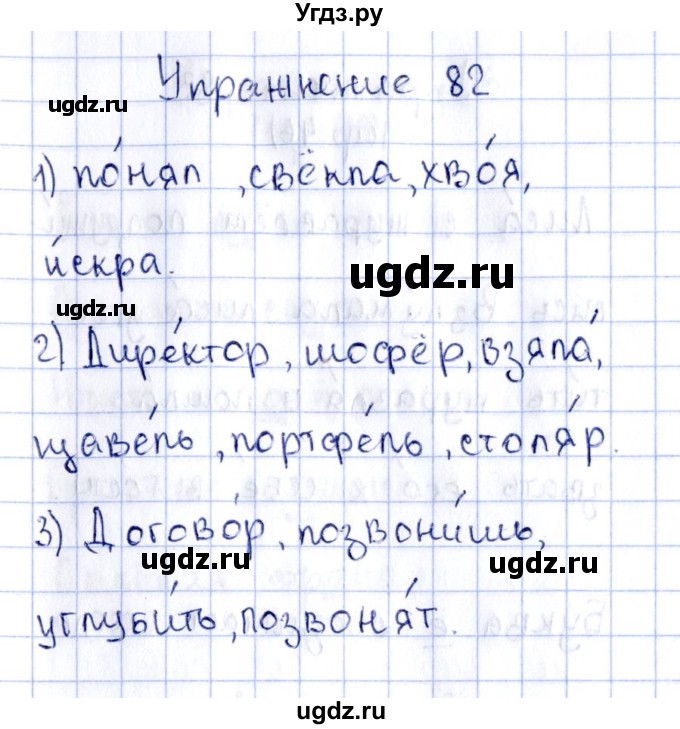 Угдз.ру
Упражнение 82
ugdz.ru
ugdz.ru
1) по́нял, свёкла, хво́я,
и́скра.
ugdz.ru
ugdz.ru
2) Дире́ктор, шофёр, взяла́,
щаве́ль, портфе́ль, столя́р.
3) Догово́р, позвони́шь,
ugdz.ru
ugdz.ru
углуби́ть, позвоня́т.
ugdz.ru